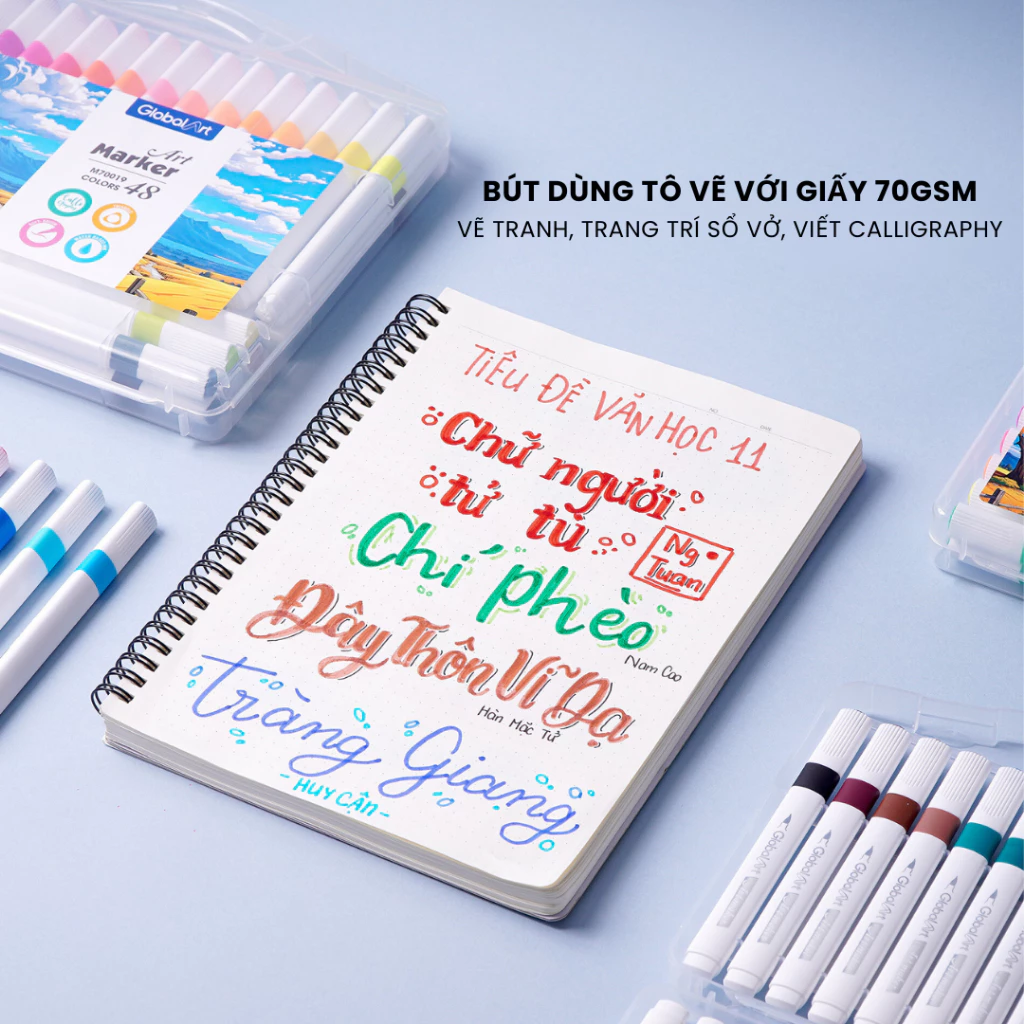 GlobalArt
Art
Marker
M70019
COLORS 48
BÚT DÙNG TÔ VẼ VỚI GIẤY 70GSM
VẼ TRANH, TRANG TRÍ SỔ VỞ, VIẾT CALLIGRAPHY
TIÊU ĐỀ VĂN HỌC 11
Chữ người
tử tù
Ng
Tuan
Chí phèo
Nam Cao
Đây Thôn Vĩ Dạ
Hàn Mặc Tử
Tràng Giang
- HUY CẬN -
GlobalArt
GlobalArt
GlobalArt
GlobalArt
GlobalArt
GlobalArt